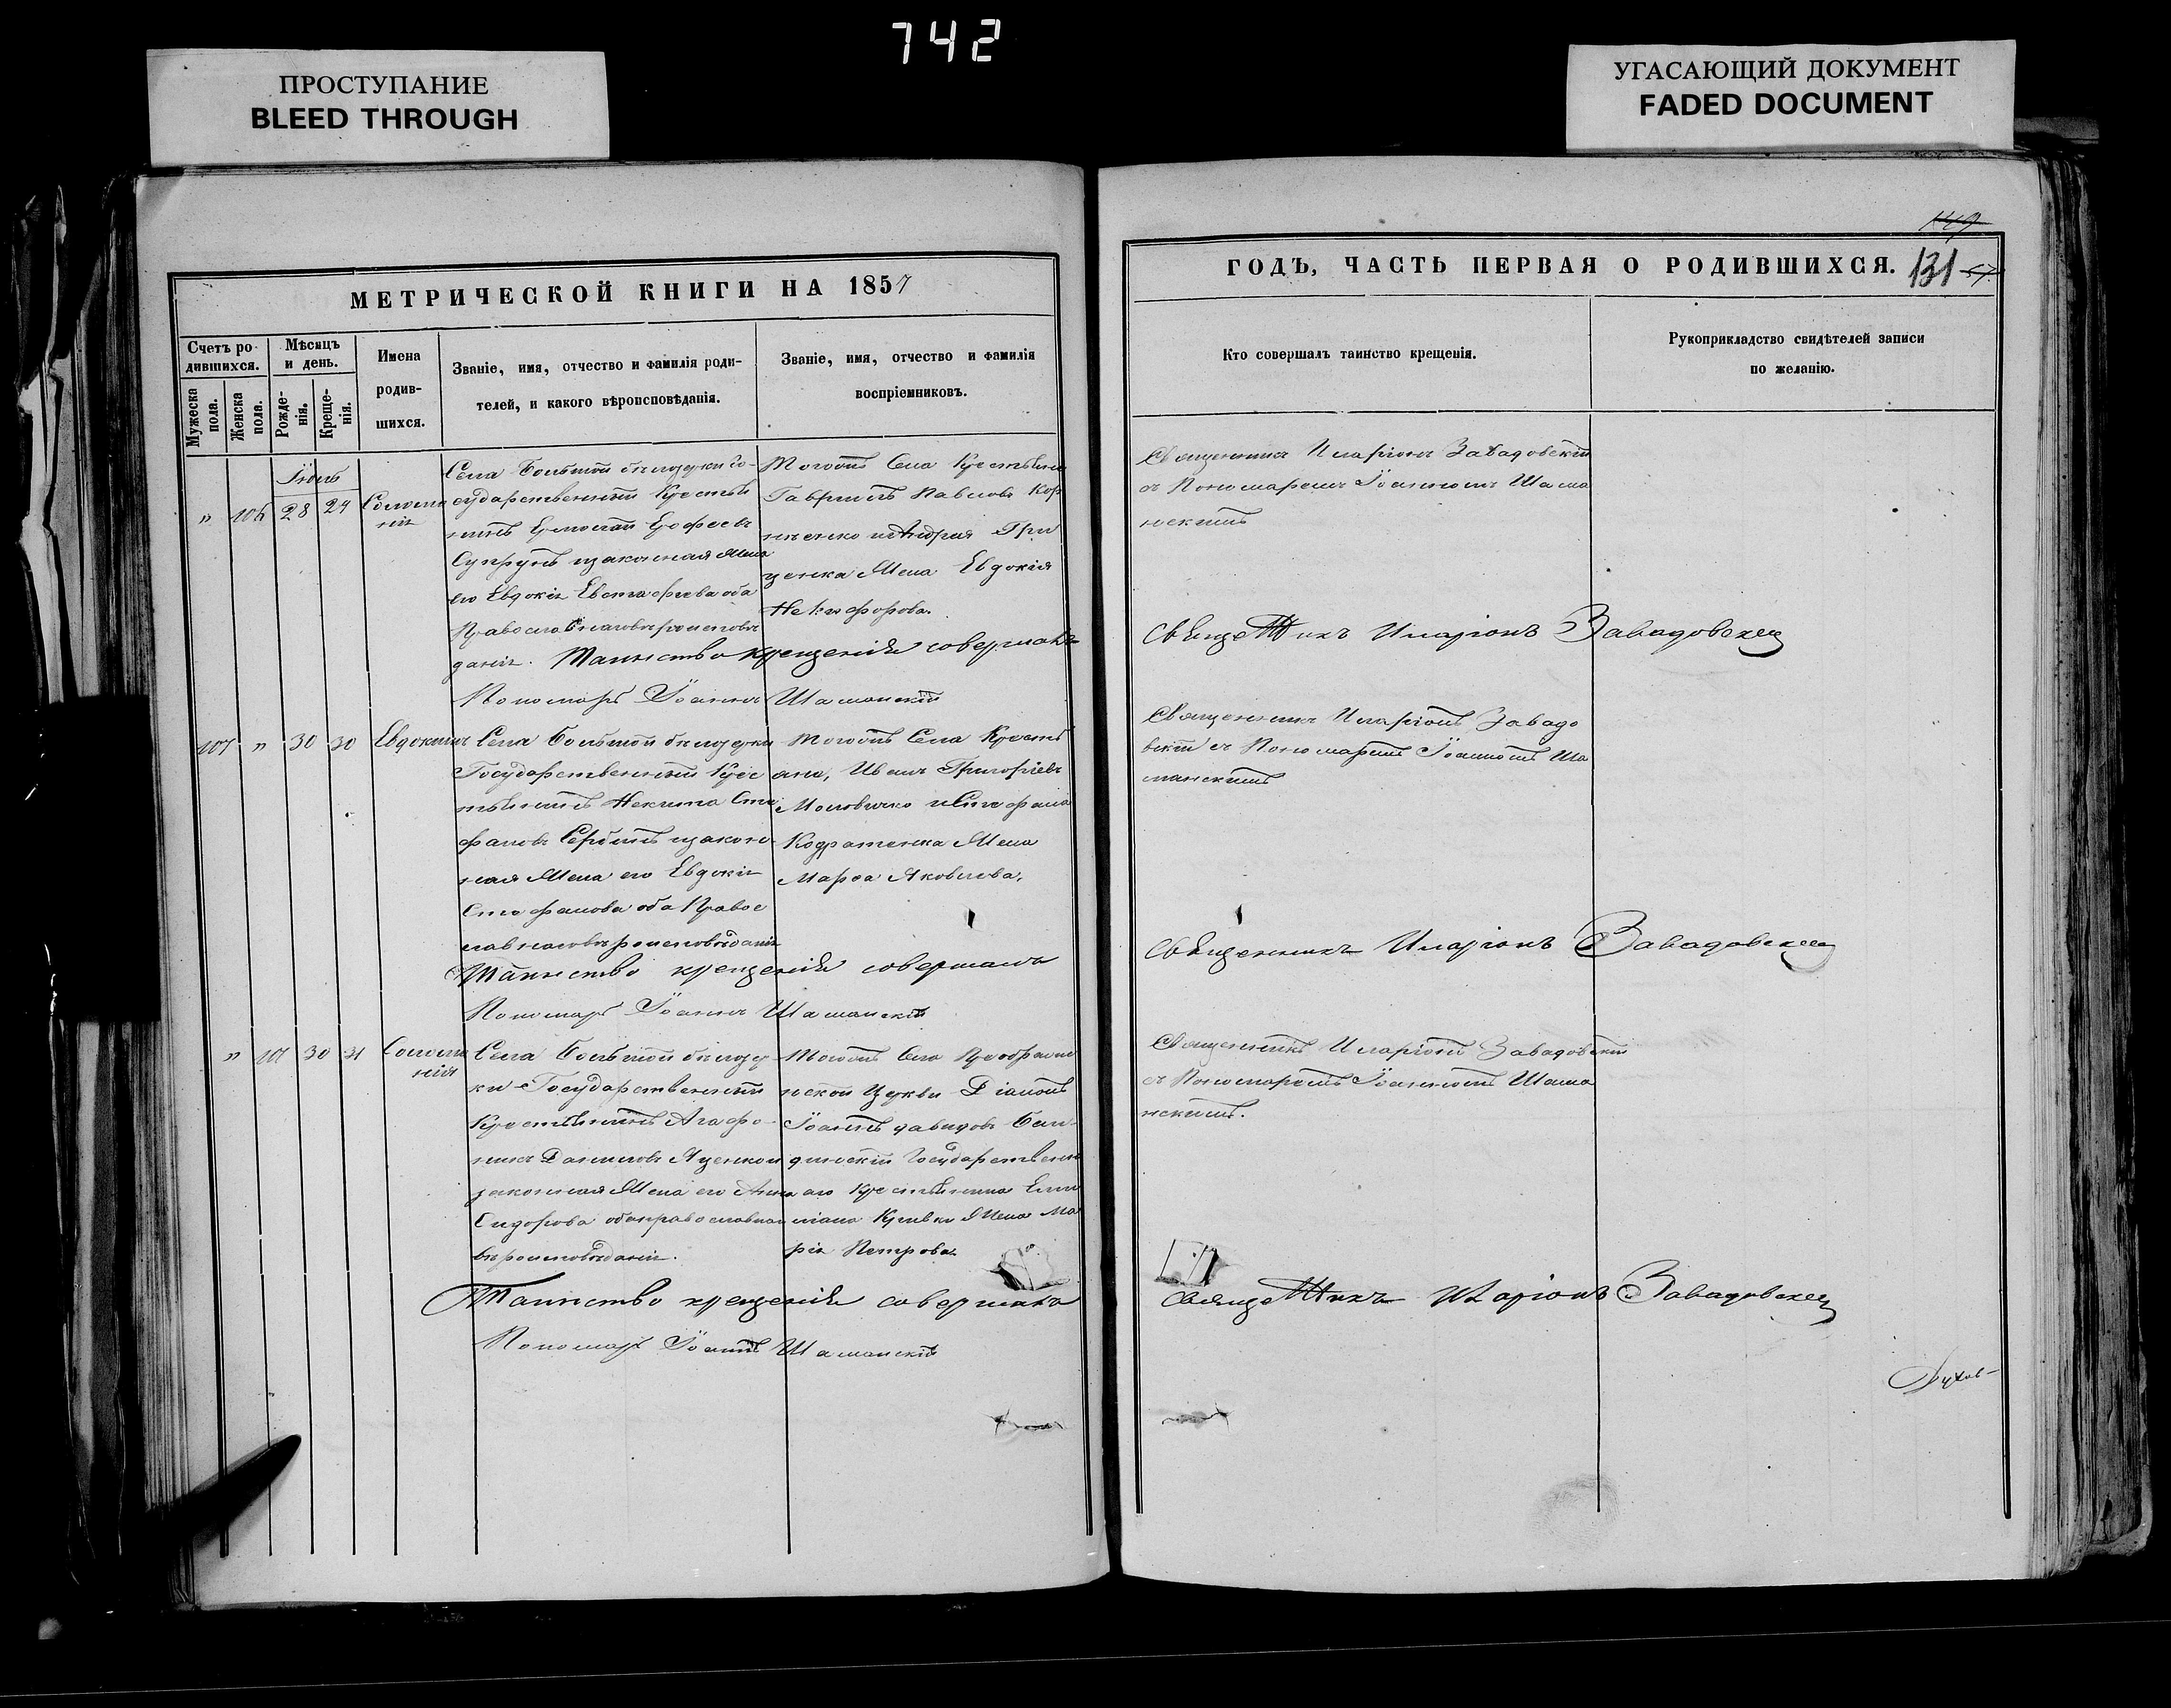 742
ПРОСТУПАНИЕ
BLEED THROUGH
УГАСАЮЩИЙ ДОКУМЕНТ
FADED DOCUMENT
МЕТРИЧЕСКОЙ КНИГИ НА 1857
Счетъ ро-
дившихся.
Мужеска
пола.
Женска
пола.
Мѣсяцъ
и день.
Рожде-
нія.
Креще-
нія.
Имена
родив-
шихся.
Званіе, имя, отчество и фамилія роди-
телей, и какого вѣроисповѣданія.
Званіе, имя, отчество и фамилія
воспріемниковъ.
Іюль
" 28 29 Соломо
нія
Села Большой бѣлозерки Го-
сударственный Крестья
нинъ Ермолай Ерофеевъ
Супрунъ изаконная Жена
его Евдокія Евстафіева оба
Православнаговѣроисповѣ
данія. Таинство крещенія совершалъ
Пономарь Іоаннъ Шаманскій
Тогожъ Села Крестьяни
Гавріилъ Павловъ Кор
ніенко иАндрея Гри
ценка Жена Евдокія
Некифорова.
107 " 30 30 Евдокимъ
Села Большой бѣлозерки
Государственный Крес
тьянинъ Никита Сте
фановъ Сербинъ изакон
ная Жена его Евдокія
Стефанова оба Правос
лавнаговѣроисповѣданія
Таинство крещенія совершалъ
Пономарь Іоаннъ Шаманскій
Тогожъ Села Крестья
Иванъ Григоріевъ
иСтефана
Кодратенка Жена
Марѳа Яковлева.
" 30 31 Соломо
нія
Села Большой бѣлозер
ки Государственный
Крестьянинъ Агафо-
никъ Даниловъ Яценкои
законная Жена его Анна
Сидорова обаправославнаго
вѣроисповѣданія.
Тогожъ Села Преображе
нской Церкви Діаконъ
Іоаннъ давидовъ
Государственн
аго Крестьянина Еми
ліана Кривки Жена Ма
рія Петрова.
Таинство крещенія совершалъ
Пономарь Іоаннъ Шаманскій
ГОДЪ, ЧАСТЬ ПЕРВАЯ О РОДИВШИХСЯ.
131
Кто совершалъ таинство крещенія.
Рукоприкладство свидѣтелей записи
по желанію.
Священникъ Иларіонъ Завадовскій
съ Пономаремъ Іоанномъ Шама
нскимъ
Священникъ Иларіонъ Завадовскій
Священникъ Иларіонъ Завадо
вскій съ Пономаремъ Іоанномъ Ша
манскимъ
Священникъ Иларіонъ Завадовскій
Священникъ Иларіонъ Завадовскій
съ Пономаремъ Іоанномъ Шама
нскимъ.
Священникъ Иларіонъ Завадовскій